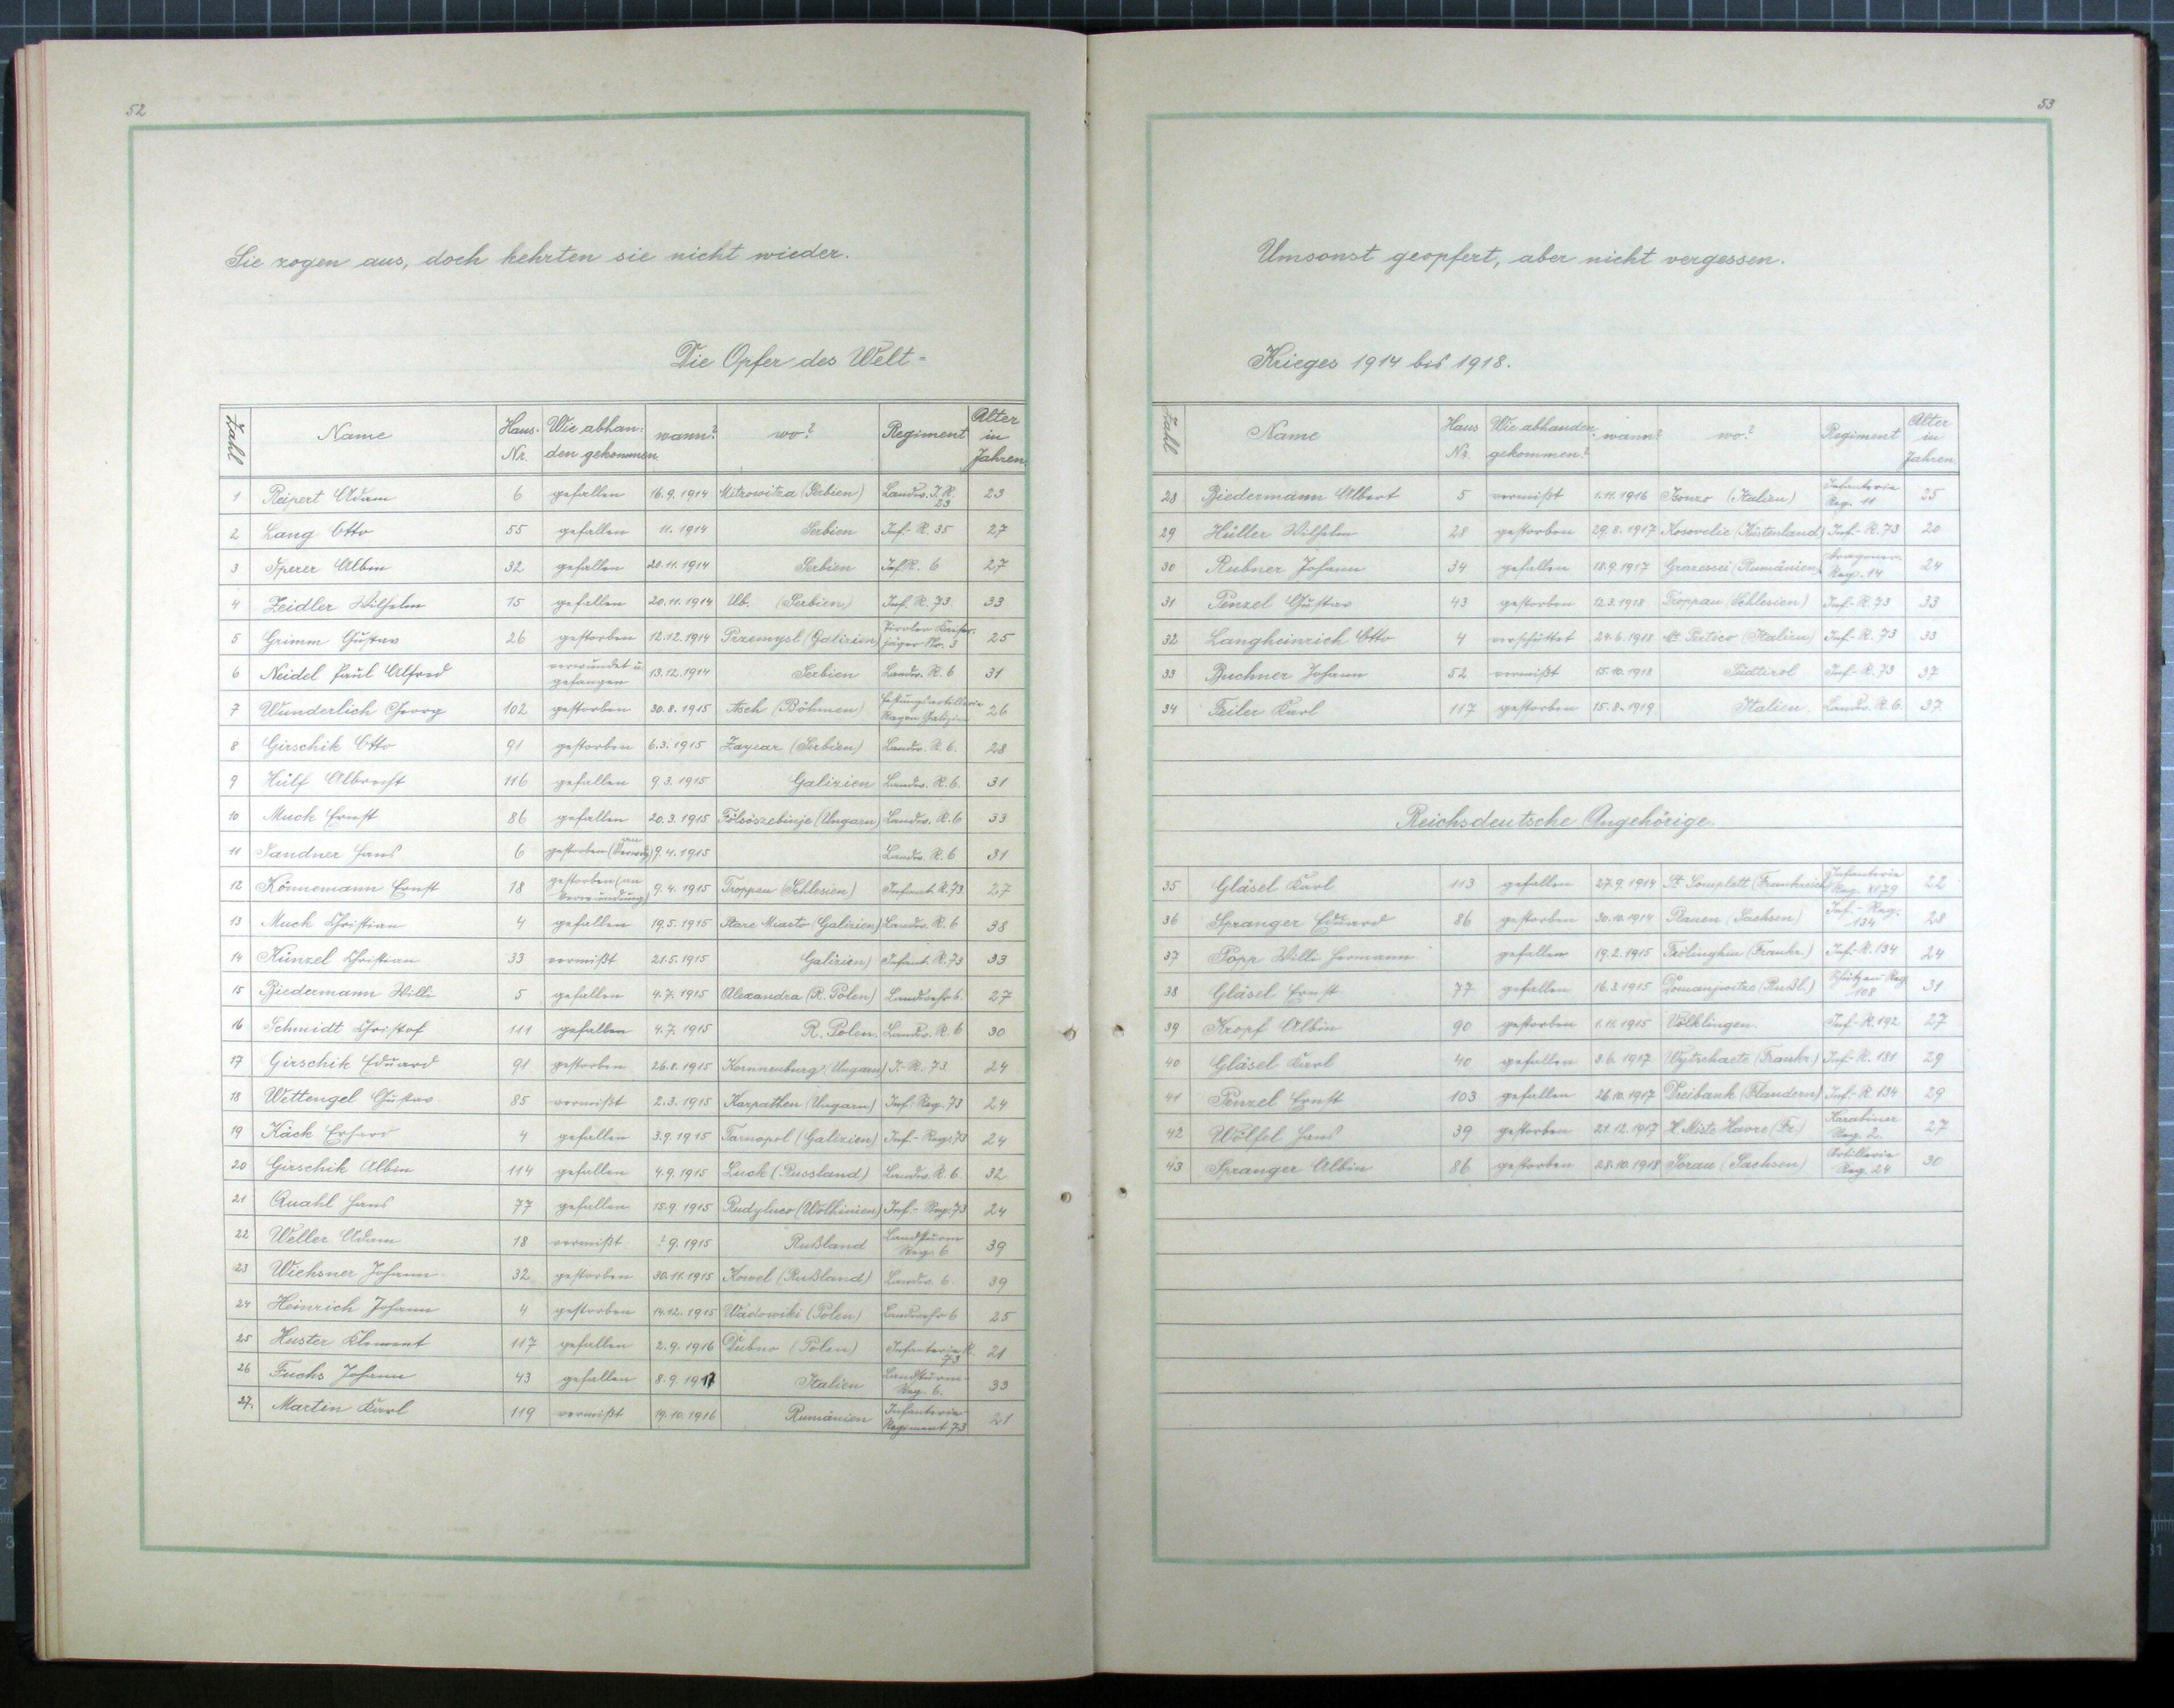 52
Sie zogen aus, doch kehrten sie nicht wieder.
Die Opfer des Welt-
Zahl Name Haus-Nr. Wie abhan-den gekommen wann? wo? Regiment Alter in Jahren
1 Reipert Adam 6 gefallen 16.9.1914 Mitrowitza (Serbien) Landw. I. R. 23 23
2 Lang Otto 55 gefallen 11.1914 Serbien Inf.-R. 35 27
3 Sperer Albin 32 gefallen 20.11.1914 Serbien Inf R. 6 27
4 Zeidler Wilhelm 15 gefallen 20.11.1914 Ub. (Serbien) Inf. R. 73. 33
5 Grimm Gustav 26 gestorben 12.12.1914 Przemysl (Galizien) Tiroler Kaiser-jäger No. 3 25
6 Neidel Paul Alfred verwundet u. gefangen 13.12.1914 Serbien Landw. R. 6 31
7 Wunderlich Georg 102 gestorben 30.8.1915 Asch (Böhmen) Festungsartillerie 26
8 Girschik Otto 91 gestorben 6.3.1915 Zaycar (Serbien) Landw. R. 6. 28
9 Hulf Albrecht 116 gefallen 9.3.1915 Galizien Landw. R. 6. 31
10 Muck Ernst 86 gefallen 20.3.1915 Fölsöszebinje (Ungarn) Landw. R. 6 33
11 Sandner Hans 6 gestorben (an Verwdg) 9.4.1915 Landw. R. 6 31
12 Könnemann Ernst 18 gestorben (an Verwundung) 9.4.1915 Troppau (Schlesien) Infant. R. 73. 27
13 Muck Christian 4 gefallen 19.5.1915 Stare Miasto (Galizien) Landw. R. 6 38
14 Künzel Christian 33 vermißt 21.5.1915 Galizien) Infant. R. 73 33
15 Biedermann Willi 5 gefallen 4.7.1915 Alexandra (R. Polen) Landwehr 6. 27
16 Schmidt Christof 111 gefallen 4.7.1915 R. Polen. Landw. R. 6 30
17 Girschik Eduard 91 gestorben 26.8.1915 Kornneuburg (Ungarn) I.-R. 73. 24
18 Wettengel Gustav 85 vermißt 2.3.1915 Karpathen (Ungarn) Inf. Reg. 73 24
19 Käck Erhard 4 gefallen 3.9.1915 Tarnopol (Galizien) Inf.-Reg. 73 24
20 Girschik Albin 114 gefallen 4.9.1915 Luck (Russland) Landw. R. 6. 32
21 Quahl Hans 77 gefallen 15.9.1915 Rudyluco (Wolhinien) Inf.-Reg. 73 24
22 Weller Adam 18 vermißt ? 9.1915 Rußland Landsturm Reg. 6 39
23 Wichsner Johann 32 gestorben 30.11.1915 Kowel (Rußland) Landw. 6. 39
24 Heinrich Johann 4 gestorben 14.12.1915 Wadowiki (Polen) Landwehr 6 25
25 Huster Klement 117 gefallen 2.9.1916 Dubno (Polen) Infanterie R. 73 21
26 Fuchs Johann 43 gefallen 8.9.1917 Italien Landsturm-Reg. 6. 33
27. Martin Karl 119 vermißt 19.10.1916 Rumänien Infanterie Regiment 73 21
53
Umsonst geopfert, aber nicht vergessen.
Krieges 1914 bis 1918.
Zahl Name Haus Nr. Wie abhanden gekommen? wann? wo? Regiment Alter in Jahren
28 Biedermann Albert 5 vermißt 1.11.1916 Isonzo (Italien) Infanterie Reg. 11 25
29 Hüller Wilhelm 28 gestorben 29.8.1917 Kosovelie (Küstenland) Inf.-R. 73 20
30 Rubner Johann 34 gefallen 18.9.1917 Grazessei (Rumänien) Dragoner-Reg. 14 24
31 Penzel Gustav 43 gestorben 12.3.1918 Troppau (Schlesien) Inf.-R. 73 33
32 Langheinrich Otto 4 verschüttet 24.6.1918 Mt. Pertico (Italien) Inf.-R. 73 33
33 Buchner Johann 52 vermißt 15.10.1918 Südtirol Inf.-R. 73 37
34 Feiler Karl 117 gestorben 15.8.1919 Italien. Landw. R. 6. 37
Reichsdeutsche Angehörige.
35 Gläsel Karl 113 gefallen 27.9.1914 St. Somplett (Frankreich) Infanterie Reg. 179 22
36 Spranger Eduard 86 gestorben 30.10.1914 Plauen (Sachsen) Inf.-Reg. 134 28
37 Popp Willi Hermann gefallen 19.2.1915 Frölinghin (Frankr.) Inf.-R. 134 24
38 Gläsel Ernst 77 gefallen 16.3.1915 Domanjwitze (Rußl.) Schützen Reg. 108 31
39 Kropf Albin 90 gestorben 1.11.1915 Völklingen. Inf.-R. 192 27
40 Gläsel Karl 40 gefallen 3.6.1917 Wytschaete (Frankr.) Inf.-R. 181 29
41 Penzel Ernst 103 gefallen 26.10.1917 Dreibank (Flandern) Inf.-R. 134 29
42 Wölfel Hans 39 gestorben 21.12.1917 H. Miste Havre (Fr.) Karabiner Reg. 2. 27
43 Spranger Albin 86 gestorben 28.10.1918 Sorau (Sachsen) Artillerie Reg. 24 30